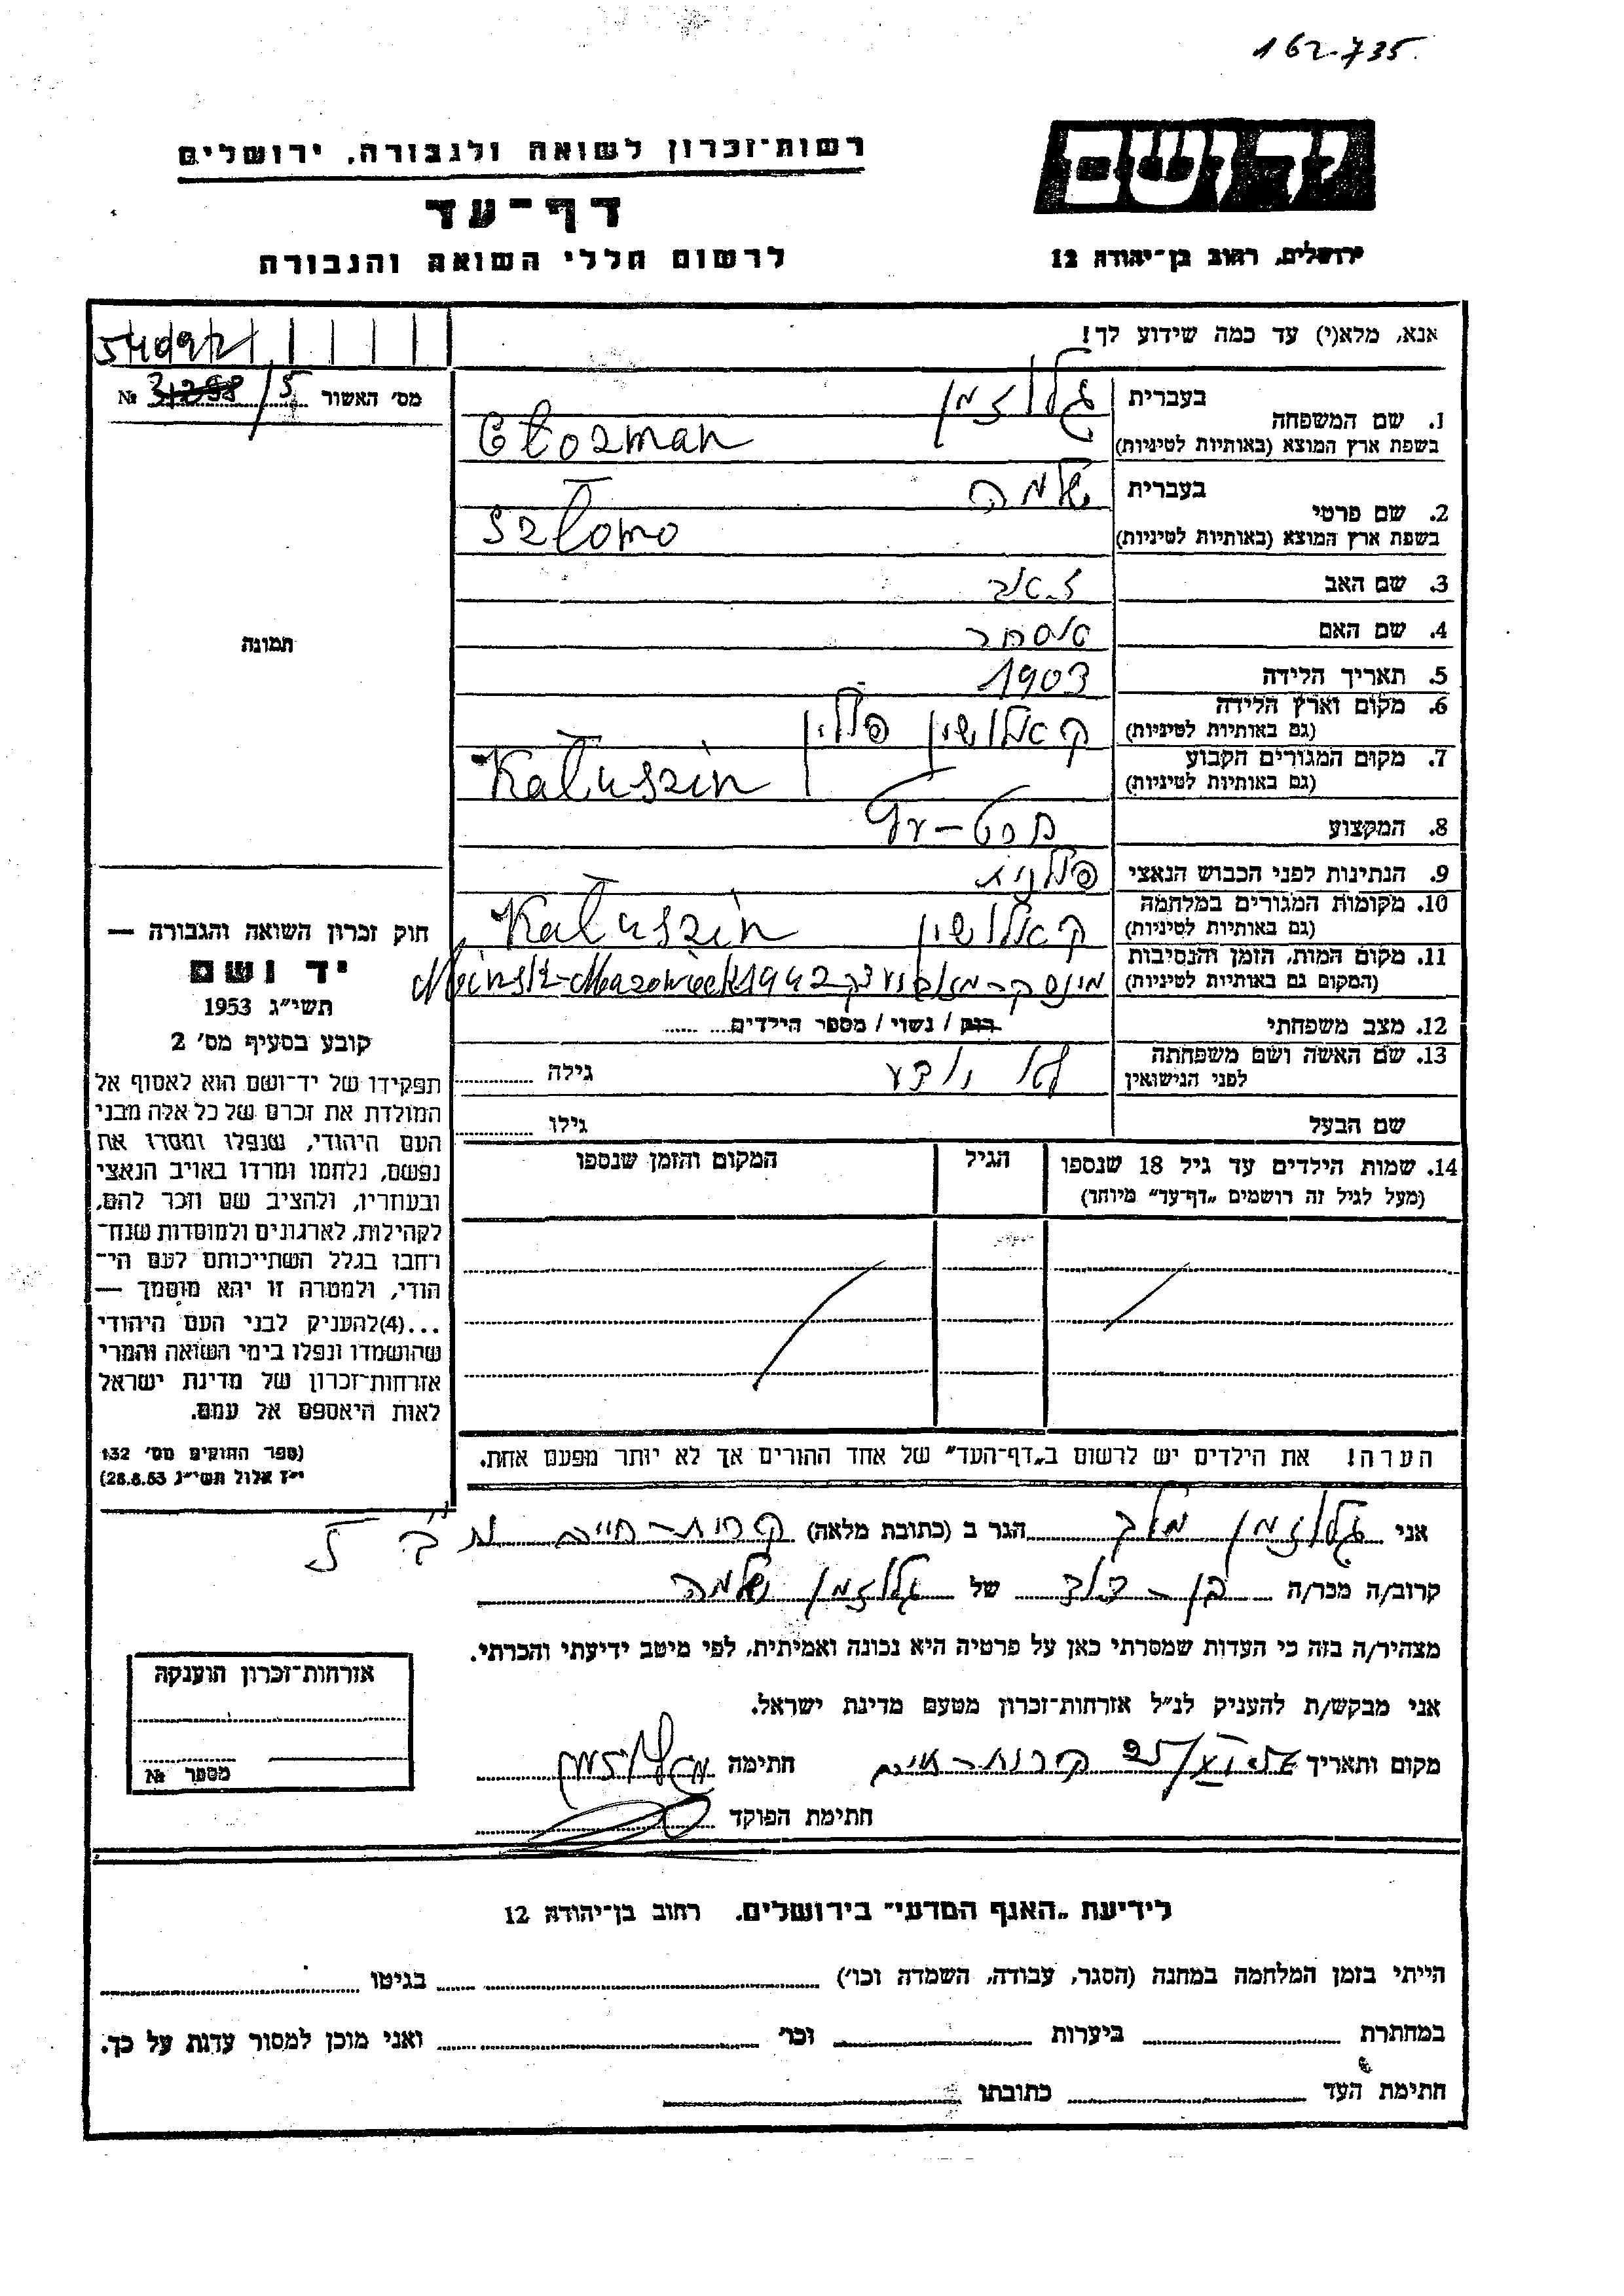 162-735.
יד ושם
רשות־זכרון לשואה ולגבורה, ירושלים
דף־עד
לרשום חללי השואה והגבורה
ירושלים, רחוב בן־יהודה 12
אנא, מלא(י) עד כמה שידוע לך!
מס' האשור № 31298/5
1. שם המשפחה
בעברית גלוזמן
בשפת ארץ המוצא (באותיות לטיניות) Głozman
2. שם פרטי
בעברית שלמה
בשפת ארץ המוצא (באותיות לטיניות) Szlomo
3. שם האב זאב
4. שם האם אסתר
5. תאריך הלידה 1903
6. מקום וארץ הלידה קאלושין פולין
(גם באותיות לטיניות)
7. מקום המגורים הקבוע Kałuszin
(גם באותיות לטיניות)
8. המקצוע
9. הנתינות לפני הכבוש הנאצי פולנית
10. מקומות המגורים במלחמה קאלושין Kałuszin
(גם באותיות לטיניות)
11. מקום המות, הזמן והנסיבות
(המקום גם באותיות לטיניות) 1942
12. מצב משפחתי רווק / נשוי / מספר הילדים
13. שם האשה ושם משפחתה
לפני הנישואין
גילה
שם הבעל
גילו
14. שמות הילדים עד גיל 18 שנספו
(מעל לגיל זה רושמים „דף־עד" מיוחד)
הגיל
המקום והזמן שנספו
הערה! את הילדים יש לרשום ב„דף־העד" של אחד ההורים אך לא יותר מפעם אחת.
תמונה
חוק זכרון השואה והגבורה —
יד ושם
תשי"ג 1953
קובע בסעיף מס' 2
תפקידו של יד־ושם הוא לאסוף אל
המולדת את זכרם של כל אלה מבני
העם היהודי, שנפלו ומסרו את
נפשם, נלחמו ומרדו באויב הנאצי
ובעוזריו, ולהציב שם וזכר להם,
לקהילות, לארגונים ולמוסדות שנח־
רבו בגלל השתייכותם לעם הי־
הודי, ולמטרה זו יהא מוסמך —
...(4) להעניק לבני העם היהודי
שהושמדו ונפלו בימי השואה והמרי
אזרחות־זכרון של מדינת ישראל
לאות היאספם אל עמם.
(ספר החוקים מס' 132
י"ז אלול תשי"ג 28.8.53)
אני גלוזמן הגר ב (כתובת מלאה) קרית-חיים
קרוב/ה מכר/ה בן-דוד של גלוזמן שלמה
מצהיר/ה בזה כי העדות שמסרתי כאן על פרטיה היא נכונה ואמיתית, לפי מיטב ידיעתי והכרתי.
אני מבקש/ת להעניק לנ"ל אזרחות־זכרון מטעם מדינת ישראל.
מקום ותאריך קרית-חיים חתימה
חתימת הפוקד
אזרחות־זכרון הוענקה
מספר №
לידיעת „האגף המדעי" בירושלים, רחוב בן־יהודה 12
הייתי בזמן המלחמה במחנה (הסגר, עבודה, השמדה וכו') בגיטו
במחתרת ביערות וכו' ואני מוכן למסור עדות על כך.
חתימת העד כתובתו